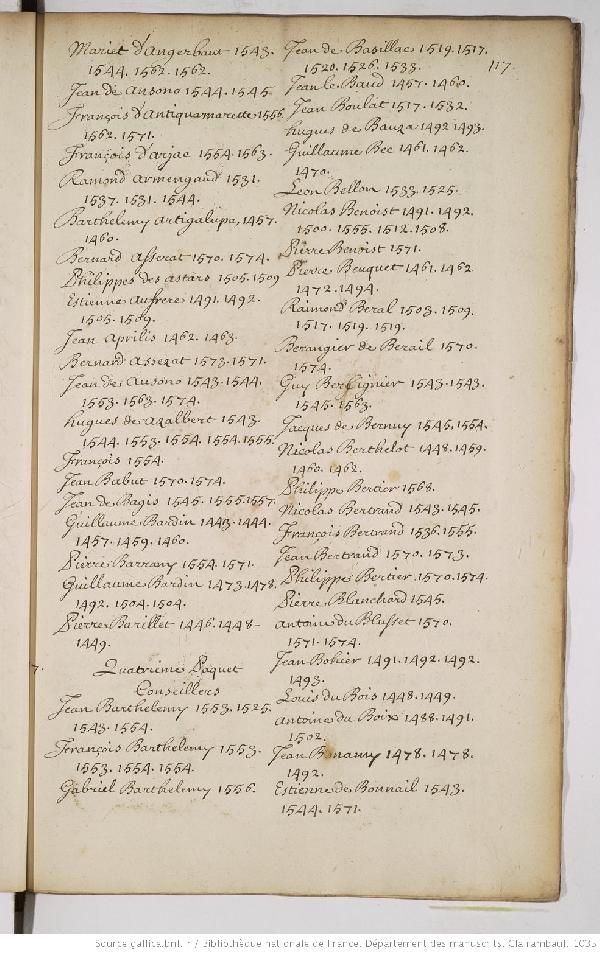 Mariet d'Angerbaut 1543.
1544. 1562. 1562.
Jean de Ausono 1544. 1545
François d'Antiquamareste 1556
1562. 1571.
François d'arjac 1554. 1563.
Ramond Armengaud 1531.
1537. 1531. 1544.
Barthelemy Artigalupa, 1457.
1460.
Bernard Asserat 1570. 1574.
Philippes des Astars 1505. 1509
Estienne Aufrere 1491. 1492.
1505. 1509.
Jean Aprilis 1462. 1463.
Bernard Assezat 1573. 1571.
Jean des Ausono 1543. 1544.
1553. 1563. 1574.
hugues de Azalbert 1543.
1544. 1553. 1554. 1554. 1555.
François 1554.
Jean Babut 1570. 1574.
Jean de Bagis 1545. 1555. 1557.
Guillaume Bardin 1443. 1444.
1457. 1459. 1460.
Pierre Barrany 1554. 1571.
Guillaume Bardin 1473. 1478.
1492. 1504. 1504.
Pierre Barillet 1446. 1448-
1449.
7.
Quatrieme Paquet
Conseillers
Jean Barthelemy 1553. 1525.
1543. 1554.
François Barthelemy 1553.
1553. 1554. 1554.
Gabriel Barthelemy 1556.
117.
Jean de Basillac 1519. 1517.
1520. 1526. 1533.
Jean le Baud 1457. 1460.
Jean Boulat 1517. 1532.
hugues de Bauza 1492. 1493.
Guillaume Bec 1461. 1462.
1470.
Leon Bellom 1533. 1525.
Nicolas Benoist 1491. 1492.
1500. 1555. 1512. 1508.
Pierre Benoist 1571.
Pierre Beuquet 1461. 1462.
1472. 1494.
Raimond Beral 1503. 1509.
1517. 1519. 1519.
Berangier de Berail 1570.
1574.
Guy 1543. 1543.
1545. 1563.
Jacques de Bernuy 1545. 1554.
Nicolas Berthelot 1448. 1459.
1460. 1462.
Philippe Bertier 1568.
Nicolas Bertrand 1543. 1545.
François Bertrand 1536. 1555.
Jean Bertrand 1570. 1573.
Philippe Bertier 1570. 1574.
Pierre Blanchard 1545.
Antoine du Blusset 1570.
1571. 1574.
Jean Bohier 1491. 1492. 1492.
1493.
Louis du Bois 1448. 1449.
Antoine du Boix 1488. 1491.
1502.
Jean Bonamy 1478. 1478.
1492.
Estienne de Bonnail 1543.
1544. 1571.
Source gallica.bnf.fr / Bibliothèque nationale de France. Département des manuscrits. Clairambault 1035